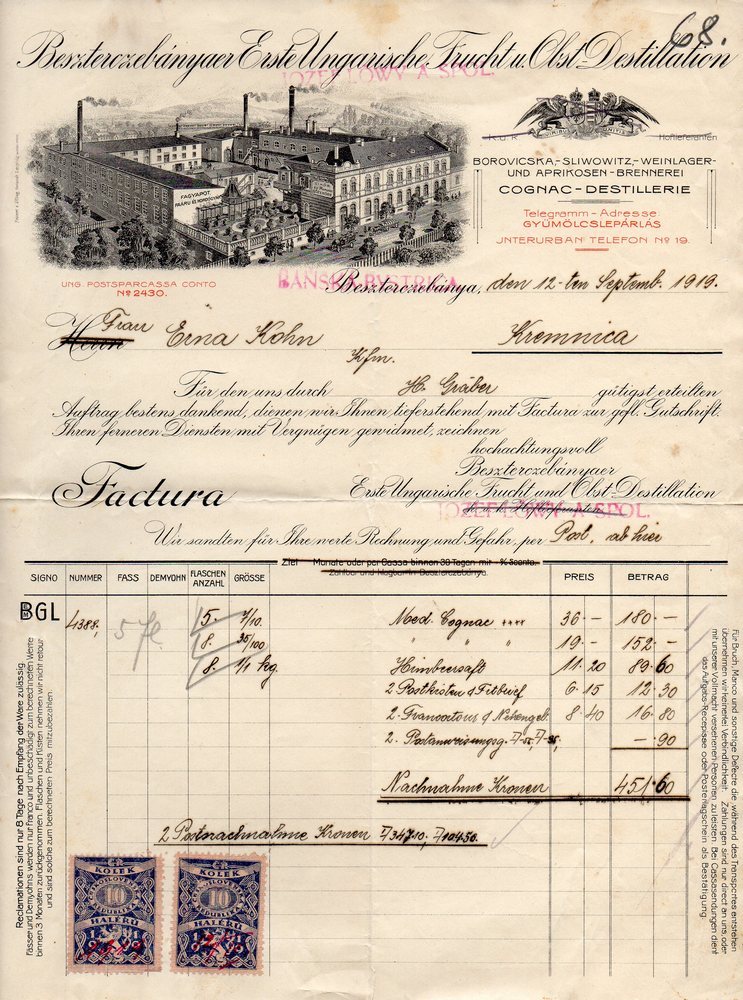 68.
Beszterczebányaer Erste Ungarische Frucht u. Obst-Destillation
JOZEF LÖWY A SPOL.
FAGYAPOT
K. u. K. Hoflieferanten
BOROVICSKA,- SLIWOWITZ,- WEINLAGER-
UND APRIKOSEN-BRENNEREI
COGNAC-DESTILLERIE
Telegramm-Adresse:
GYÜMÖLCSLEPÁRLÁS
INTERURBAN TELEFON No 19.
UNG. POSTSPARCASSA CONTO
No 2430.
BANSKÁ BYSTRICA
Beszterczebánya, den 12-ten Septemb. 1919.
Herrn Frau Erna Kohn Kremnica
Kfm.
Für den uns durch H. Gräber gütigst erteilten
Auftrag bestens dankend, dienen wir Ihnen tieferstehend mit Factura zur gefl. Gutschrift.
Ihren ferneren Diensten mit Vergnügen gewidmet, zeichnen
hochachtungsvoll
Beszterczebányaer
Factura Erste Ungarische Frucht und Obst-Destillation
JOZEF LÖWY A SPOL.
Wir sandten für Ihre werte Rechnung und Gefahr, per Post, ab hier
Ziel Monate oder per Cassa binnen 30 Tagen mit % Sconto.
Zahlbar und klagbar in Beszterczebánya.
SIGNO NUMMER FASS DEMYOHN FLASCHEN ANZAHL GRÖSSE PREIS BETRAG
BGL 4388, 5. 7/10. Med. Cognac **** 36 - 180 -
8. 35/100. " " " 19 - 152 -
8. 1/1 kg. Himbeersaft 11 20 89 60
2 Postkisten 6 15 12 30
2 8 40 16 80
2. - 90
Nachnahme Kronen 451 60
2 Postnachnahme Kronen 347 10, 104 50.
Reclamationen sind nur 8 Tage nach Empfang der Ware zulässig.
Fässer und Demyohns werden nur franco und unbeschädigt zum berechneten Werte
binnen 3 Monaten zurückgenommen. Flaschen und Kisten nehmen wir nicht retour
und sind solche zum berechneten Preis mitzubezahlen.
Für Bruch, Manco und sonstige Defecte die während des Transportes entstehen
übernehmen wir keinerlei Verbindlichkeit. Zahlungen sind nur direct an uns, oder
mit unserer Vollmacht versehenen Personen, zu leisten. Bei Cassasendungen dient
das Aufgabs-Recepisse oder Posterlagschein als Bestätigung.
KOLEK
10
HALÉŘŮ
1919
KOLEK
10
HALÉŘŮ
1919